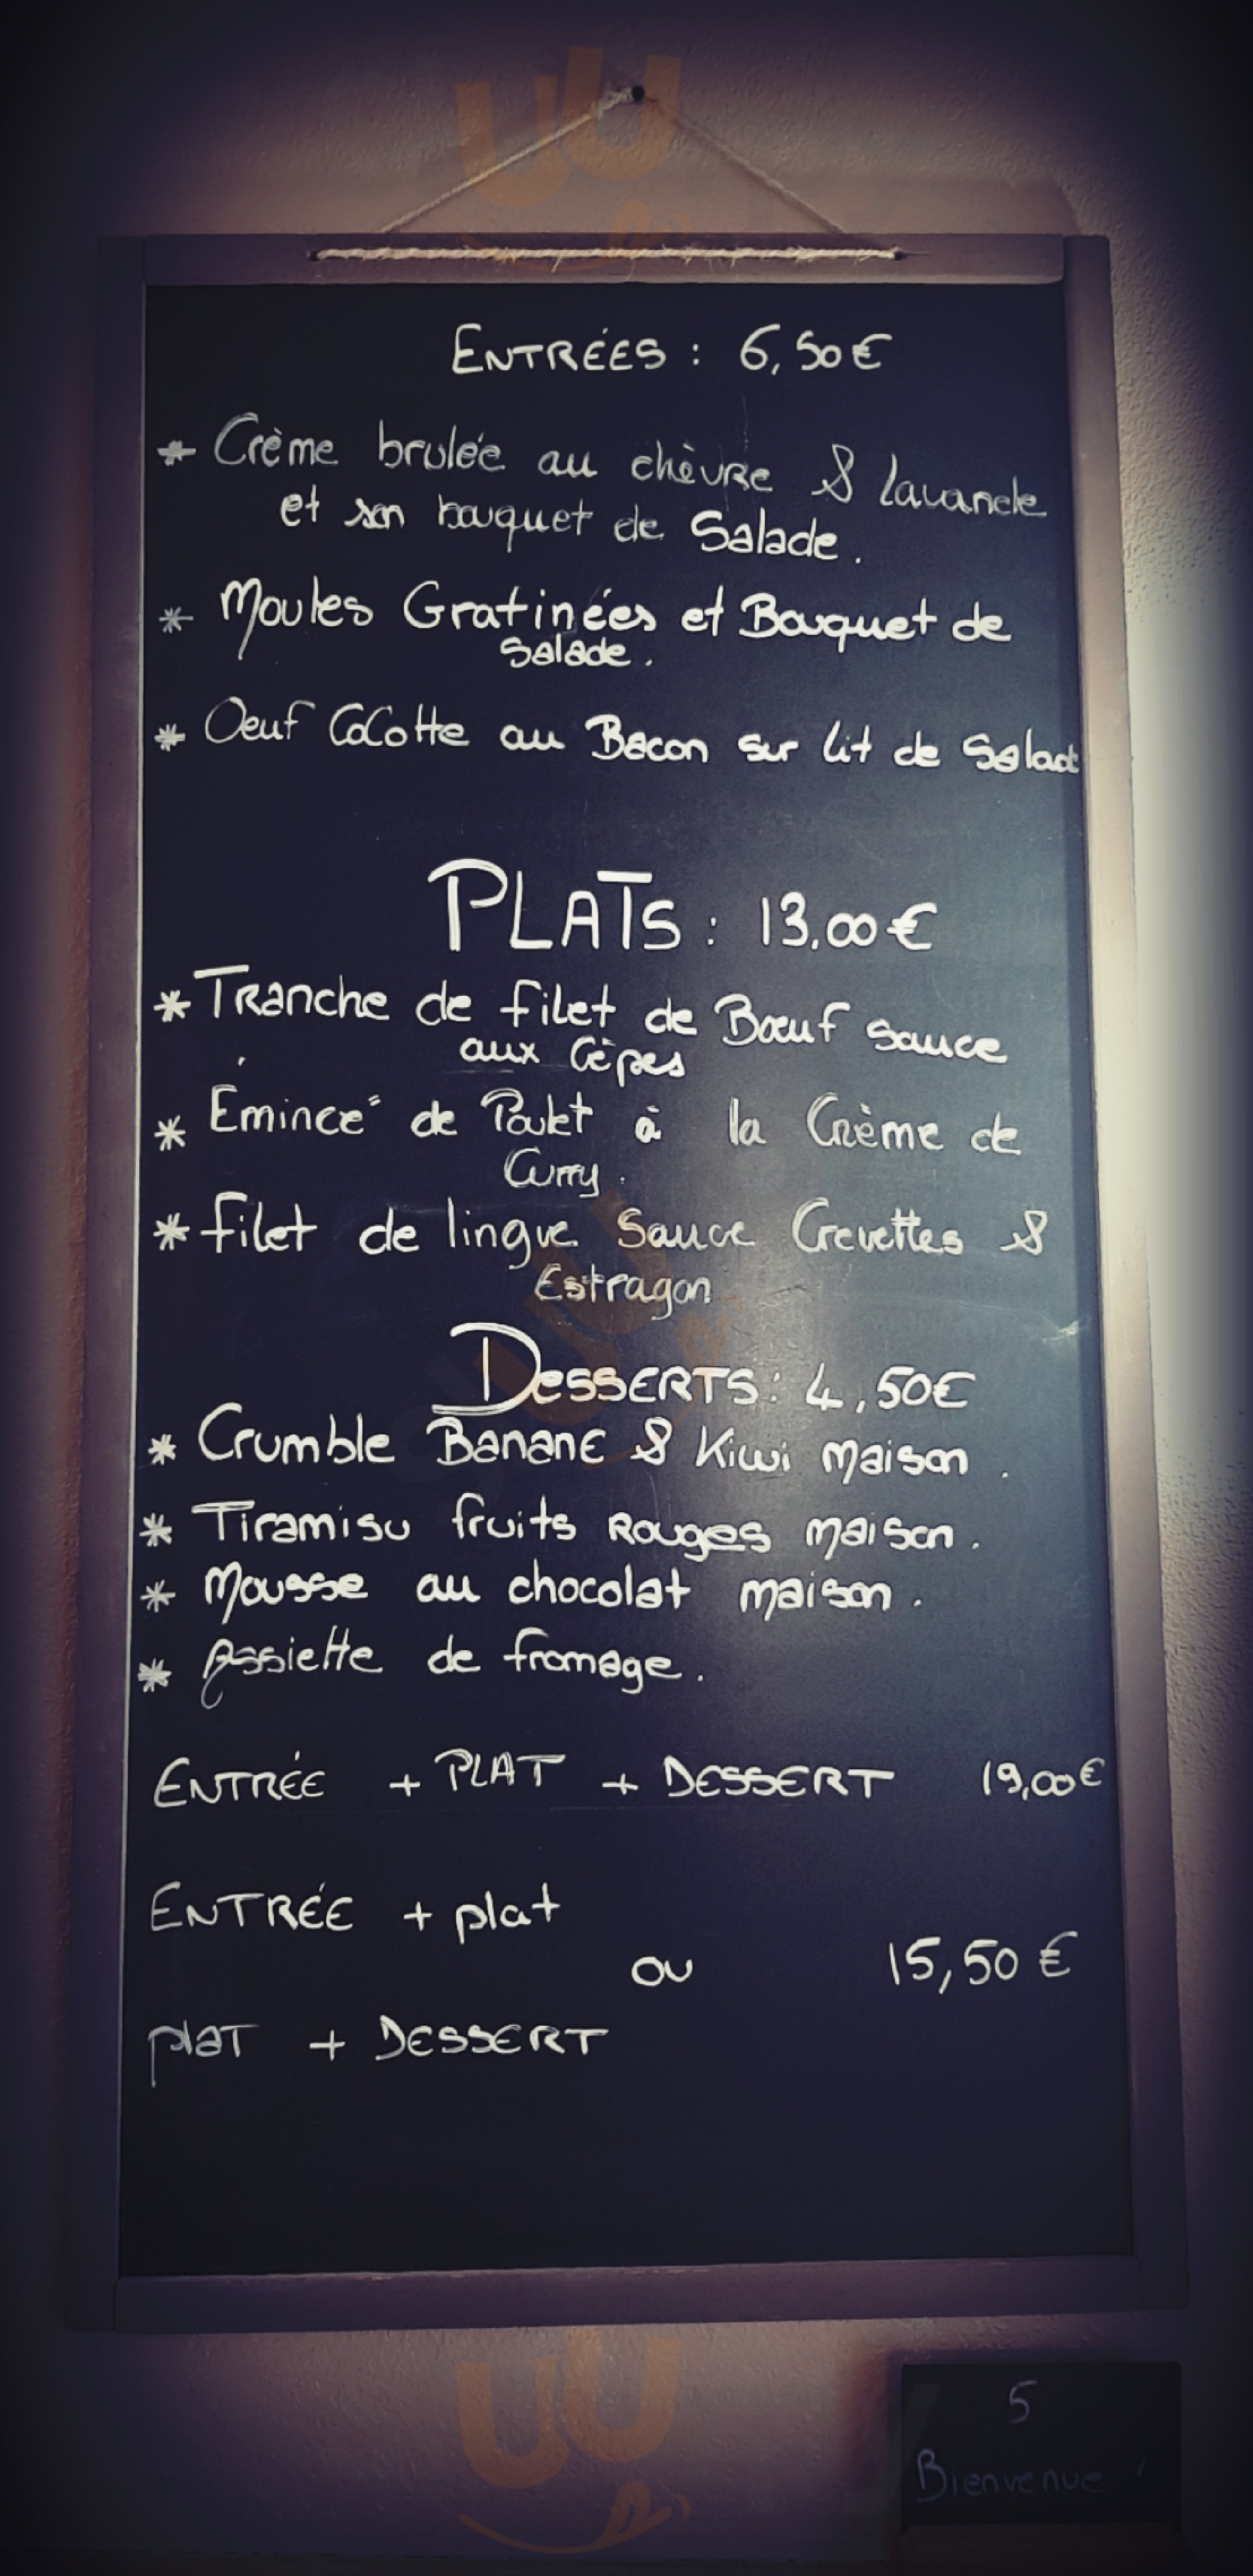 ENTRÉES : 6,50€
* Crème brulée au chèvre & lavande
et son bouquet de Salade.
* Moules Gratinées et Bouquet de
Salade.
* Oeuf Cocotte au Bacon sur lit de Salade
PLATS : 13,00€
* Tranche de filet de Bœuf sauce
aux Cèpes
* Émincé de Poulet à la Crème de
Curry.
* filet de lingue Sauce Crevettes &
Estragon
DESSERTS : 4,50€
* Crumble Banane & Kiwi maison.
* Tiramisu fruits Rouges maison.
* Mousse au chocolat maison.
* Assiette de fromage.
ENTRÉE + PLAT + DESSERT 19,00€
ENTRÉE + plat
ou 15,50 €
plat + DESSERT
5
Bienvenue !